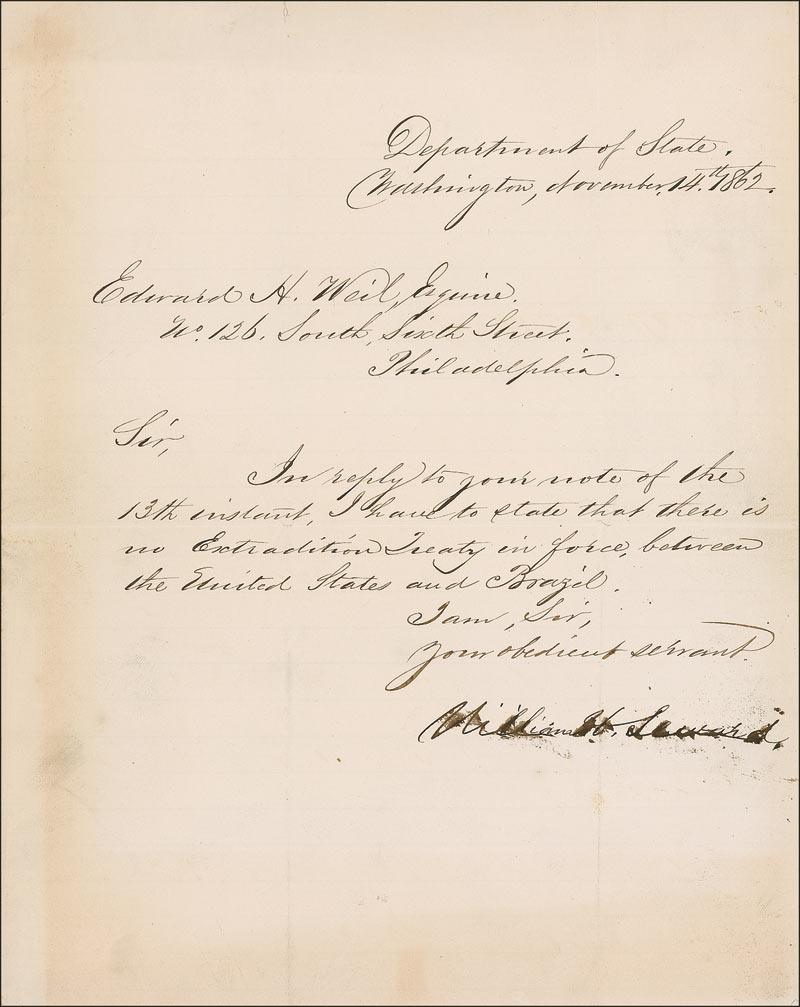 Department of State.
Washington, November, 14.th 1862.
Edward H. Weil, Esquire.
No. 126. South, Sixth Street.
Philadelphia.
Sir,
In reply to your note of the
13th instant, I have to state that there is
no Extradition Treaty in force, between
the United States and Brazil.
I am, Sir,
your obedient servant.
William H. Seward.